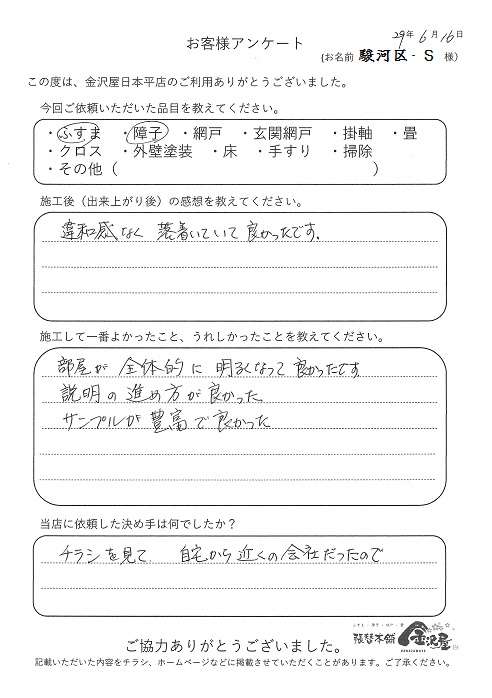 29年 6月 16日
お客様アンケート
(お名前 駿河区-S 様)
この度は、金沢屋日本平店のご利用ありがとうございました。
今回ご依頼いただいた品目を教えてください。
・ふすま ・障子 ・網戸 ・玄関網戸 ・掛軸 ・畳
・クロス ・外壁塗装 ・床 ・手すり ・掃除
・その他( )
施工後(出来上がり後)の感想を教えてください。
違和感なく 落着いていて 良かったです.
施工して一番よかったこと、うれしかったことを教えてください。
部屋が 全体的に 明るくなって 良かったです
説明の進め方が良かった
サンプルが豊富で良かった
当店に依頼した決め手は何でしたか?
チラシを見て、 自宅から近くの会社だったので
張替本舗 金沢屋
KANAZAWAYA
ご協力ありがとうございました。
記載いただいた内容をチラシ、ホームページなどに掲載させていただくことがあります。ご了承ください。